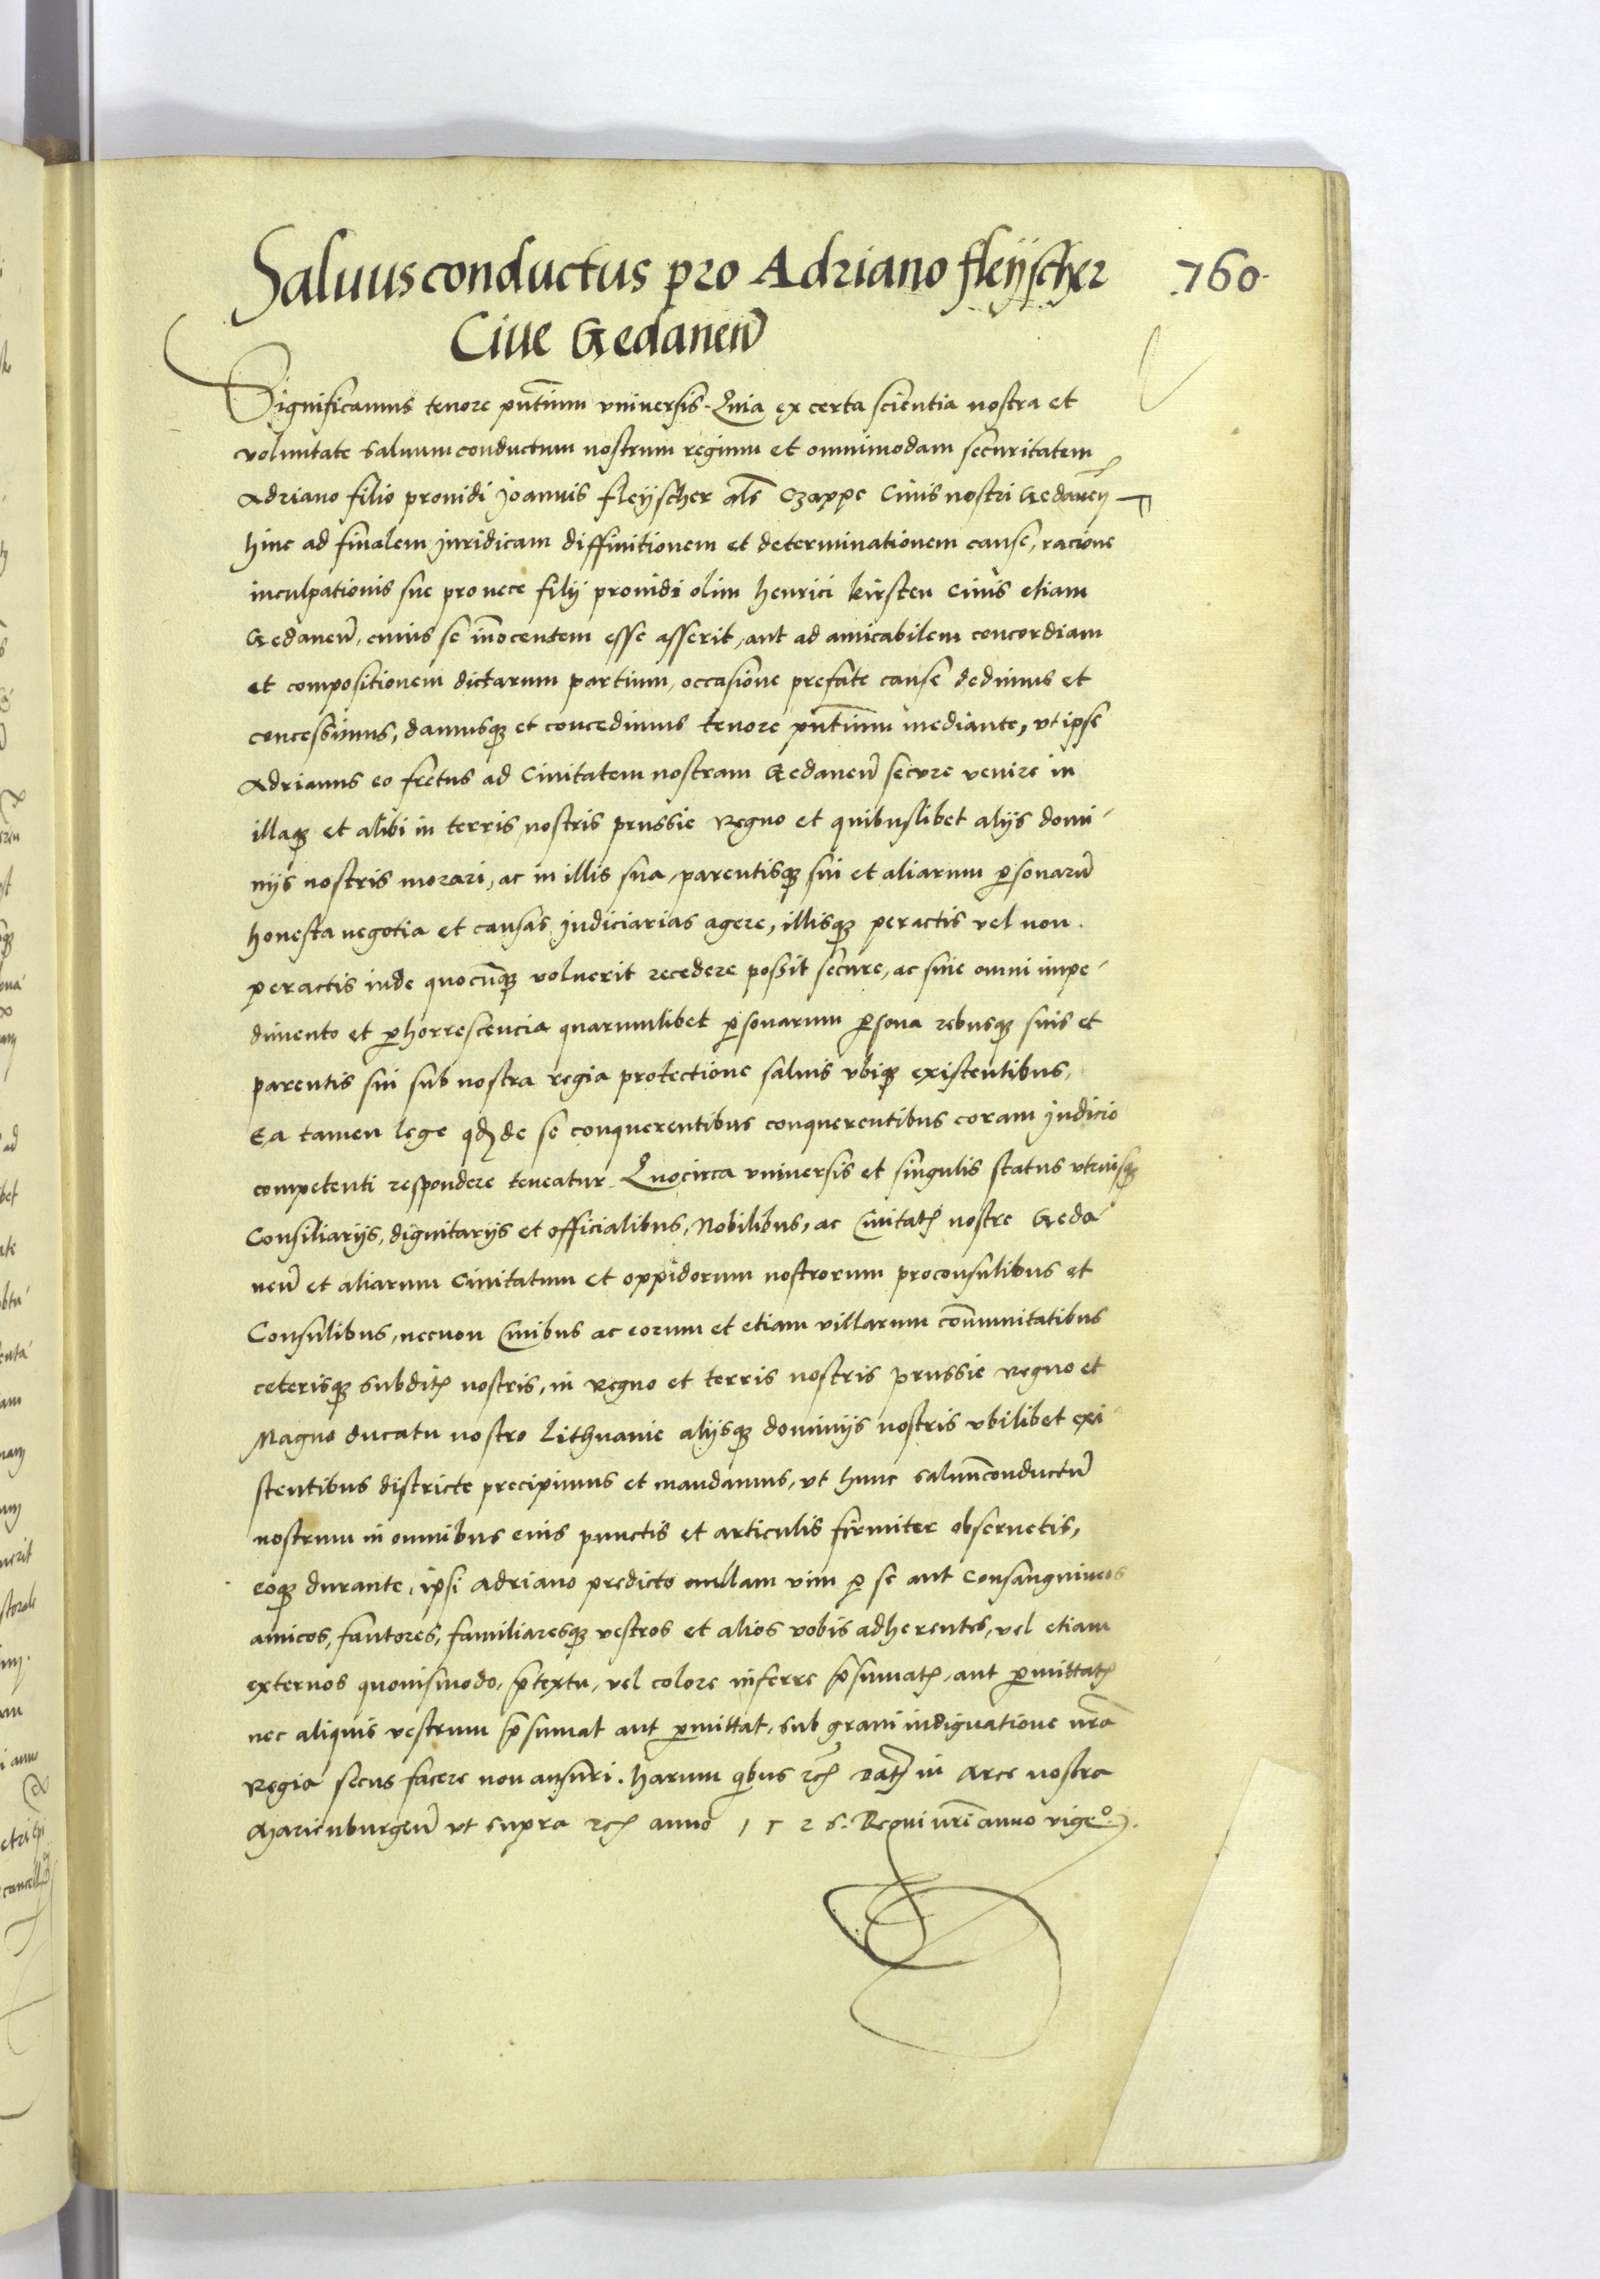 Saluusconductus pro Adriano fleÿscher 760.
Ciue Gedanen̄
Significamus tenore pn̄tium vniuersis. Quia ex certa scientia nostra et
voluntate saluumconductum nostrum regium et omnimodam securitatem
Adriano filio prouidi Joannis fleÿscher al̄s Czappe Ciuis nostri Gedanen̄
hinc ad finalem juridicam diffinitionem et determinationem cause, racione
inculpationis sue pro nece filij prouidi olim henrici kirsten Ciuis etiam
Gedanen̄, cuius se in̄ocentem esse asserit, aut ad amicabilem concordiam
et compositionem dictarum partium, occasione prefate cause dedimus et
concessimus, damusqꝫ et concedimus tenore pn̄tium mediante, vt ipse
Adrianus eo fretus ad Ciuitatem nostram Gedanen̄ secure venire in
illaqꝫ et alibi in terris nostris prussie Regno et quibuslibet alijs domi-
nijs nostris morari, ac in illis sua, parentisqꝫ sui et aliarum ꝑsonarū
honesta negotia et causas judiciarias agere, illisqꝫ peractis vel non
peractis inde quocūqꝫ voluerit recedere possit secure, ac sine omni impe-
dimento et ꝑhorrescencia quarumlibet ꝑsonarum ꝑsona rebusqꝫ suis et
parentis sui sub nostra regia protectione saluis vbiqꝫ existentibus,
Ea tamen lege qđ de se conquerentibus conquerentibus coram judicio
competenti respondere teneatur. Quocirca vniuersis et singulis status vtriusqꝫ
Consiliarijs, dignitarijs et officialibus, Nobilibus, ac Ciuitatꝭ nostre Geda-
nen̄ et aliarum Ciuitatum et oppidorum nostrorum proconsulibus et
Consulibus, necnon Ciuibus ac eorum et etiam villarum com̄unitatibus
ceterisqꝫ subditꝭ nostris, in Regno et terris nostris prussie Regno et
Magno ducatu nostro Lithuanie alijsqꝫ dominijs nostris vbilibet exi-
stentibus districte precipimus et mandamus, vt hunc saluūconductū
nostrum in omnibus eius punctis et articulis firmiter obseruetis,
eoqꝫ durante, ipsi Adriano predicto nullam vim ꝑ se aut Consanguineos
amicos, fautores, familiaresqꝫ vestros et alios vobis adherentes, vel etiam
externos quouismodo, p̄textu, vel colore inferre p̄sumatꝭ, aut ꝑmittatꝭ
nec aliquis vestrum p̄sumat aut ꝑmittat, sub graui indignatione nr̄a
Regia secus facere non ausuri. Harum qibus ꝛcꝭ Datꝭ in Arce nostra
Marienburgen̄ vt supra ꝛcꝭ anno 1526. Regni nr̄i anno vigeº.